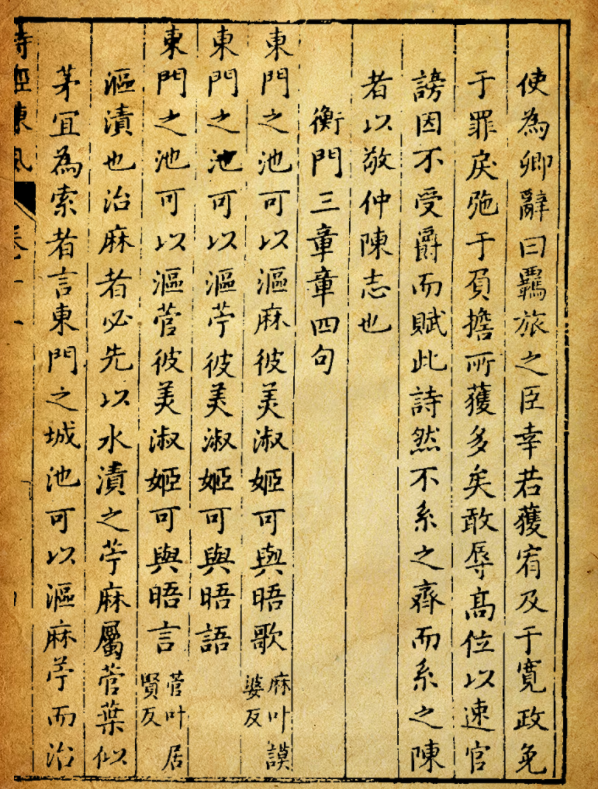 使為卿辭曰羈旅之臣幸若獲宥及于寛政免
于罪戾弛于負擔所獲多矣敢辱高位以速官
謗因不受爵而賦此詩然不系之齊而系之陳
者以敬仲陳志也
衡門三章章四句
東門之池可以漚麻彼美淑姬可與晤歌麻叶謨婆反
東門之池可以漚苧彼美淑姬可與晤語
東門之池可以漚菅彼美淑姬可與晤言菅叶居賢反
漚漬也治麻者必先以水漬之苧麻屬菅葉似
茅宜為索者言東門之城池可以漚麻苧而治
詩經陳風